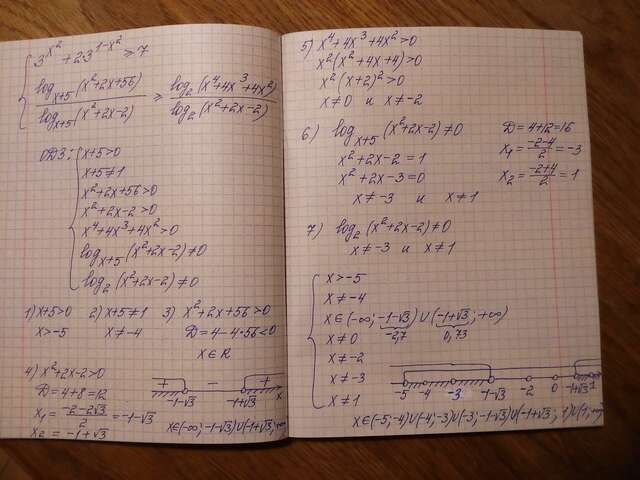 3^(x²) + 2·3^(1-x²) ≥ 7
log_(x+5)(x²+2x+56) / log_(x+5)(x²+2x-2) ≥ log₂(x⁴+4x³+4x²) / log₂(x²+2x-2)
ОДЗ:
x+5>0
x+5≠1
x²+2x+56>0
x²+2x-2>0
x⁴+4x³+4x²>0
log_(x+5)(x²+2x-2)≠0
log₂(x²+2x-2)≠0
1) x+5>0 2) x+5≠1 3) x²+2x+56>0
x>-5 x≠-4 D=4-4·56<0
x∈R
4) x²+2x-2>0
D=4+8=12
x₁ = (-2-2√3)/2 = -1-√3
x₂ = -1+√3
+ - +
-1-√3 -1+√3 x
x∈(-∞;-1-√3)∪(-1+√3;+∞
5) x⁴+4x³+4x²>0
x²(x²+4x+4)>0
x²(x+2)²>0
x≠0 и x≠-2
6) log_(x+5)(x²+2x-2)≠0 D=4+12=16
x²+2x-2=1 x₁ = (-2-4)/2 = -3
x²+2x-3=0 x₂ = (-2+4)/2 = 1
x≠-3 и x≠1
7) log₂(x²+2x-2)≠0
x≠-3 и x≠1
x>-5
x≠-4
x∈(-∞;-1-√3)∪(-1+√3;+∞)
-2,7 0,73
x≠0
x≠-2
x≠-3
x≠1
-5 -4 -3 -1-√3 -2 0 -1+√3 1
x∈(-5;-4)∪(-4;-3)∪(-3;-1-√3)∪(-1+√3;1)∪(1;